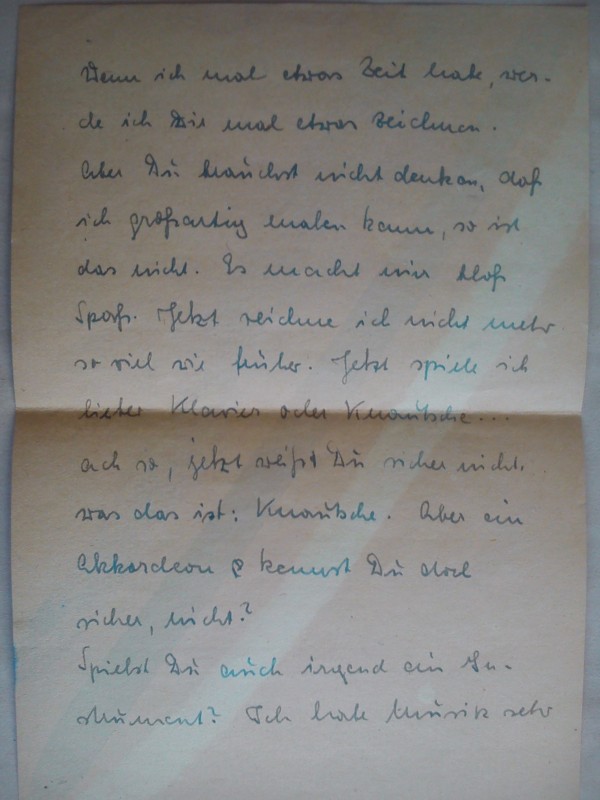 Wenn ich mal etwas Zeit habe, wer-
de ich Dir mal etwas zeichnen.
Aber Du brauchst nicht denken, daß
ich großartig malen kann, so ist
das nicht. Es macht mir bloß
Spaß. Jetzt zeichne ich nicht mehr
so viel wie früher. Jetzt spiele ich
lieber Klavier oder Knautsche...
ach so, jetzt weißt Du sicher nicht,
was das ist: Knautsche. Aber ein
Akkordeon kennst Du doch
sicher, nicht?
Spielst Du auch irgend ein In-
strument? Ich habe Musik sehr